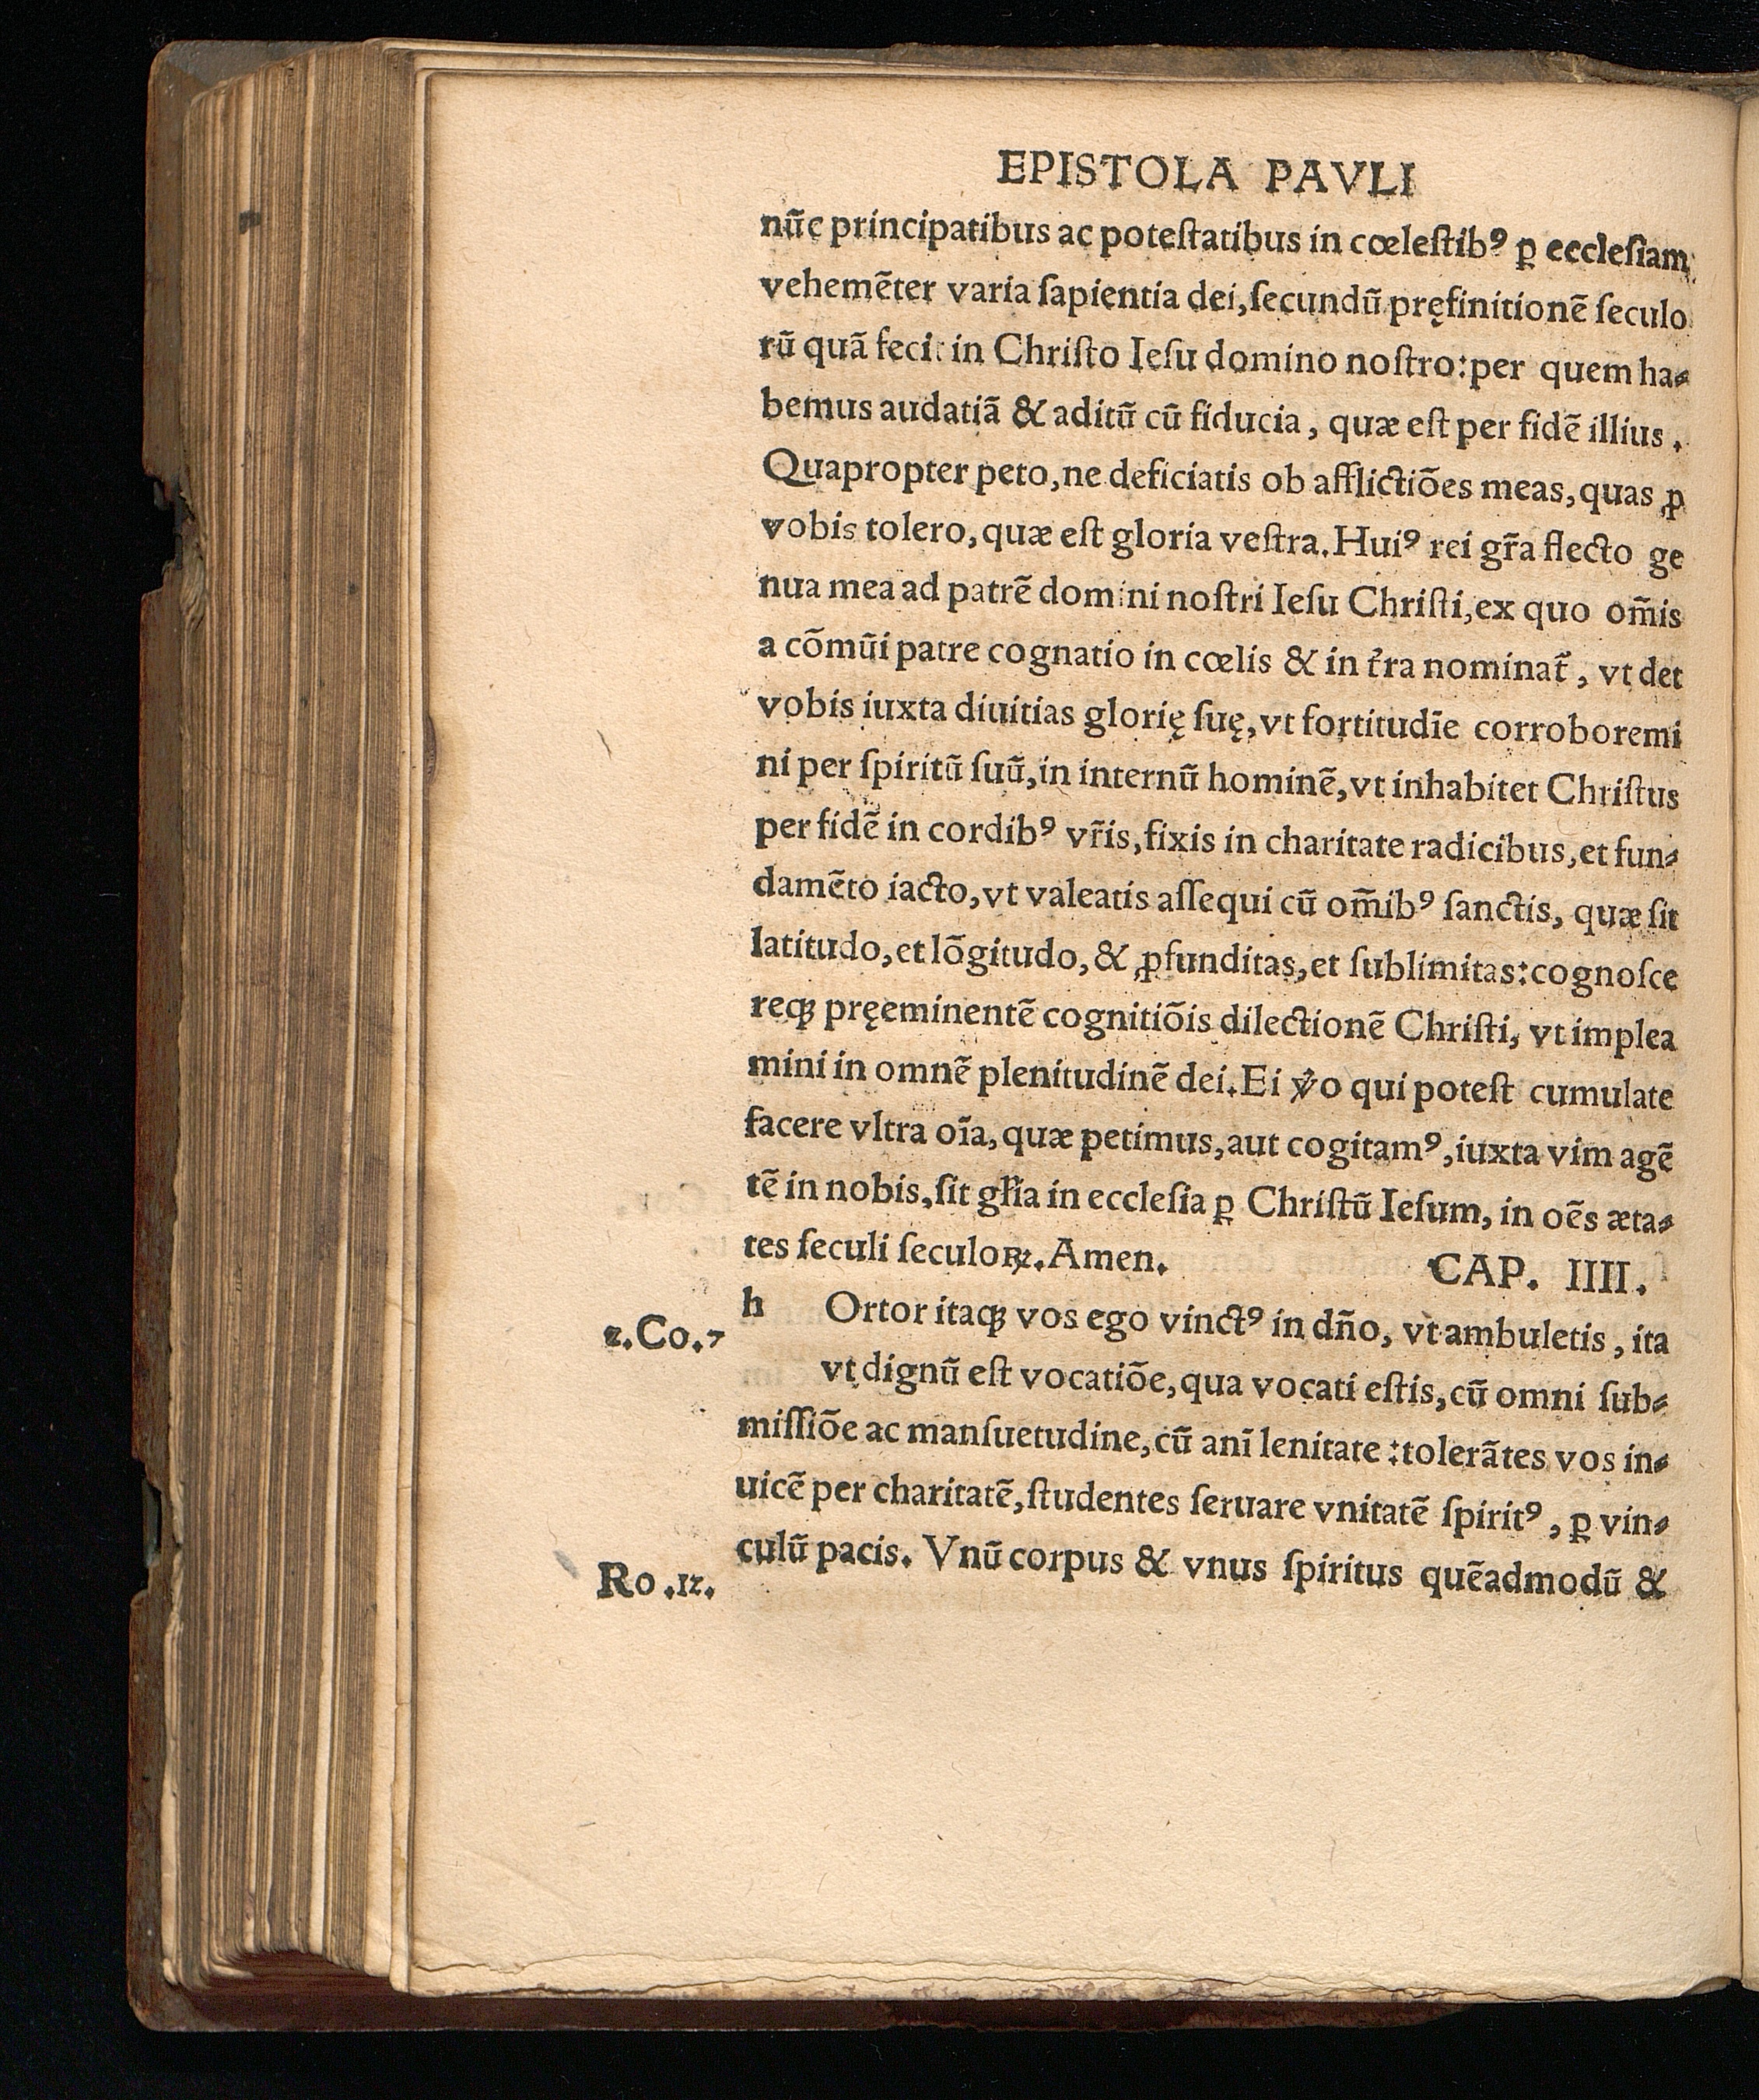 EPISTOLA PAVLI
nũc principatibus ac poteſtatibus in cœleſtibꝰ ꝑ eccleſiam
vehemẽter varia ſapientia dei, ſecundũ pręfinitionẽ ſeculo
rũ quã fecit in Chriſto Ieſu domino noſtro: per quem ha⸗
bemus audatiã & aditũ cũ fiducia, quæ eſt per fidẽ illius.
Quapropter peto, ne deficiatis ob afflictiões meas, quas ꝓ
vobis tolero, quæ eſt gloria veſtra. Huiꝰ rei gr̃a flecto ge
nua mea ad patrẽ domini noſtri Ieſu Chriſti, ex quo om̃is
a cõmũi patre cognatio in cœlis & in t̃ra nominat̃, vt det
vobis iuxta diuitias glorię ſuę, vt fortitudĩe corroboremi
ni per ſpiritũ ſuũ, in internũ hominẽ, vt inhabitet Chriſtus
per fidẽ in cordibꝰ vr̃is, fixis in charitate radicibus, et fun⸗
damẽto iacto, vt valeatis aſſequi cũ om̃ibꝰ ſanctis, quæ ſit
latitudo, et lõgitudo, & ꝓfunditas, et ſublimitas: cognoſce
reqꝫ pręeminentẽ cognitiõis dilectionẽ Chriſti, vt implea
mini in omnẽ plenitudinẽ dei. Ei v̾o qui poteſt cumulate
facere vltra oĩa, quæ petimus, aut cogitamꝰ, iuxta vim agẽ
tẽ in nobis, ſit gl̃ia in eccleſia ꝑ Chriſtũ Ieſum, in oẽs æta⸗
tes ſeculi ſeculoꝝ. Amen. CAP. IIII.
h Ortor itaqꝫ vos ego vinctꝰ in dño, vt ambuletis, ita
2.Co.7
vt dignũ eſt vocatiõe, qua vocati eſtis, cũ omni ſub⸗
miſſiõe ac manſuetudine, cũ anĩ lenitate: tolerãtes vos in⸗
uicẽ per charitatẽ, ſtudentes ſeruare vnitatẽ ſpiritꝰ, ꝑ vin⸗
culũ pacis. Vnũ corpus & vnus ſpiritus quẽadmodũ &
Ro.12.